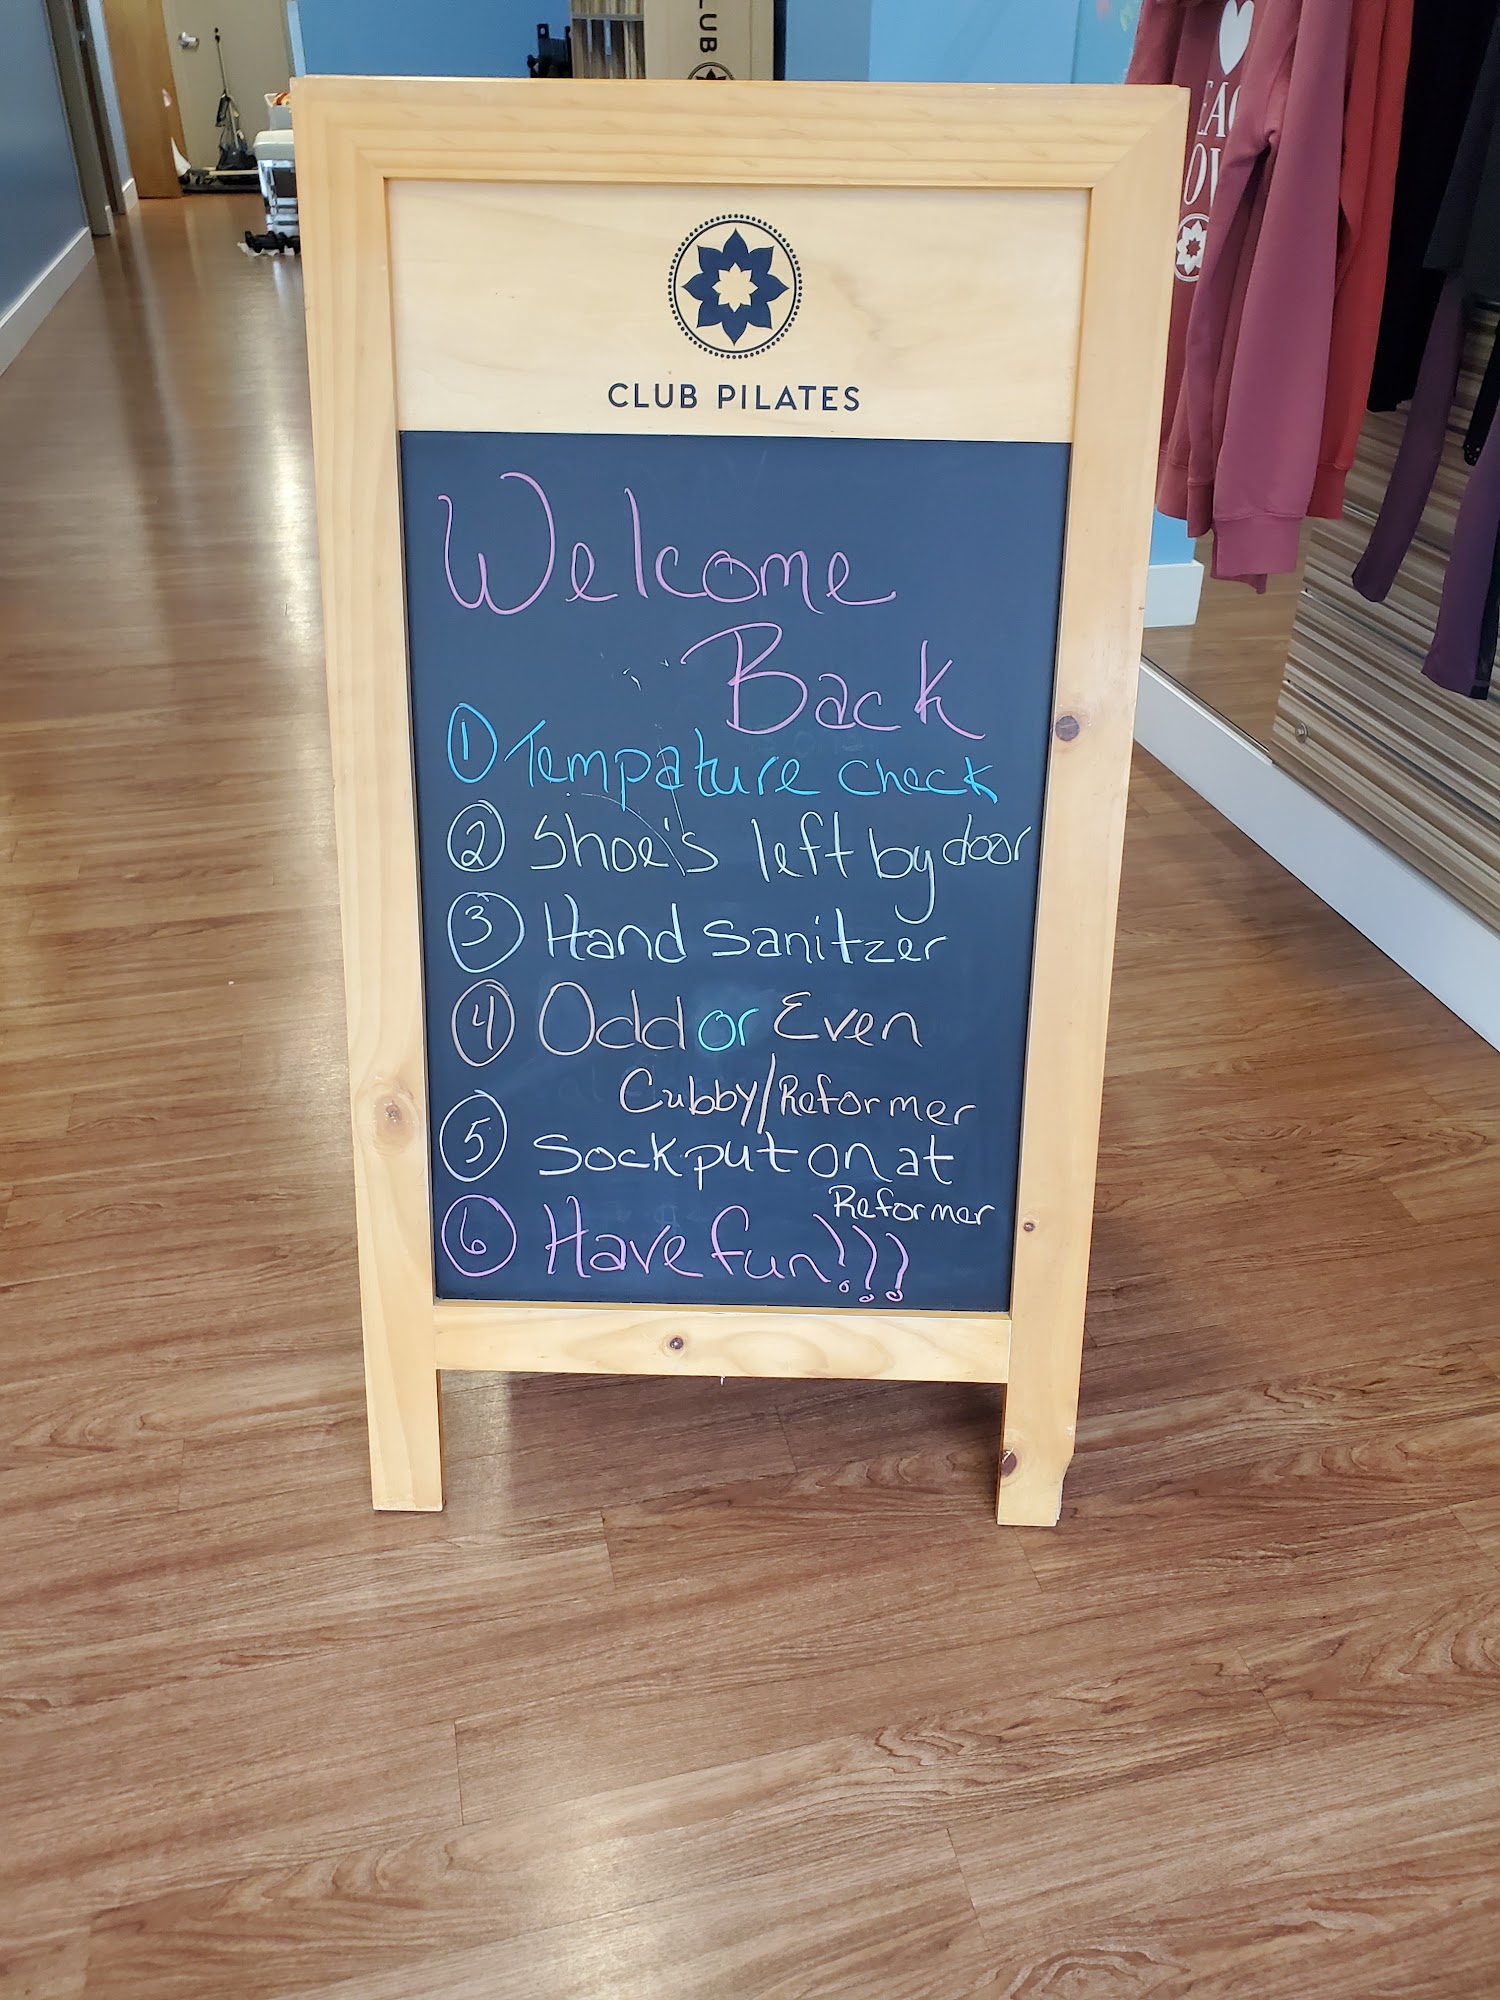 LUB
CLUB PILATES
Welcome
Back
1 Tempature check
2 Shoe's left by door
3 Hand sanitzer
4 Odd or Even
Cubby/Reformer
5 Sock put on at
Reformer
6 Have fun!!!